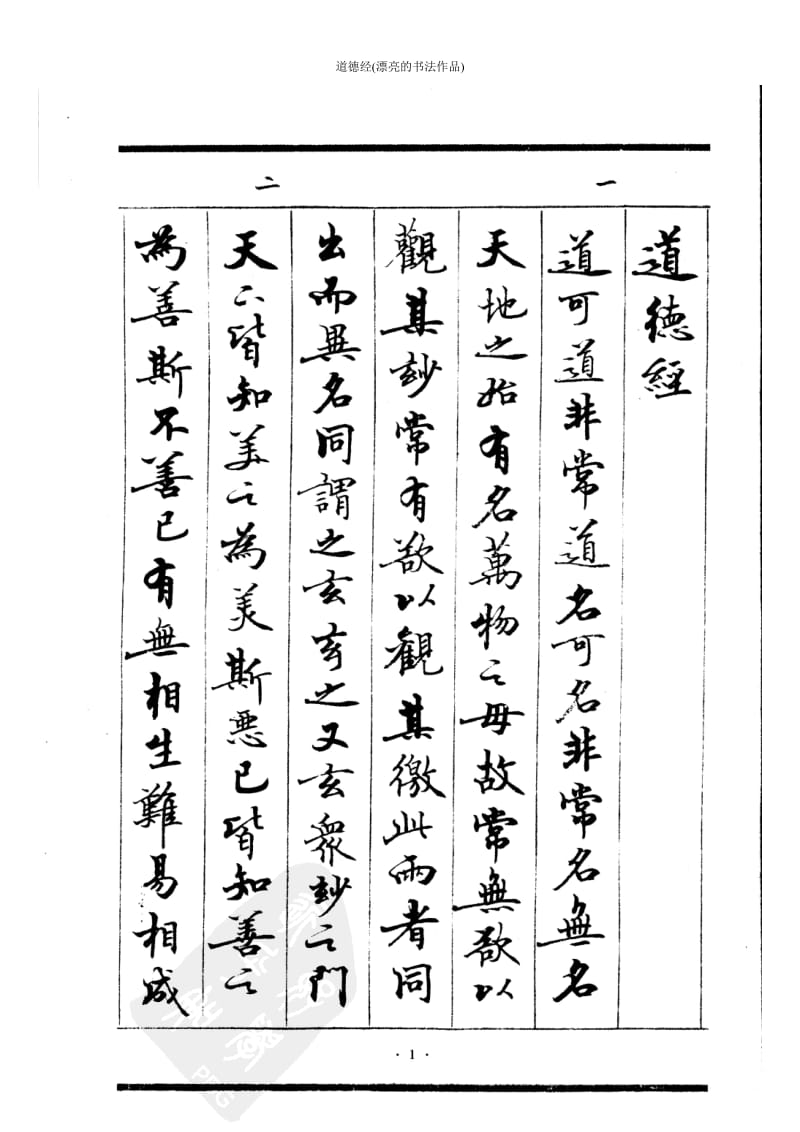 道德经(漂亮的书法作品)
一
二
道德經
道可道非常道名可名非常名無名
天地之始有名萬物之母故常無欲以
觀其玅常有欲以觀其徼此兩者同
出而異名同謂之玄玄之又玄衆玅之門
天下皆知美之為美斯惡已皆知善之
為善斯不善已有無相生難易相成
· 1 ·
PDG